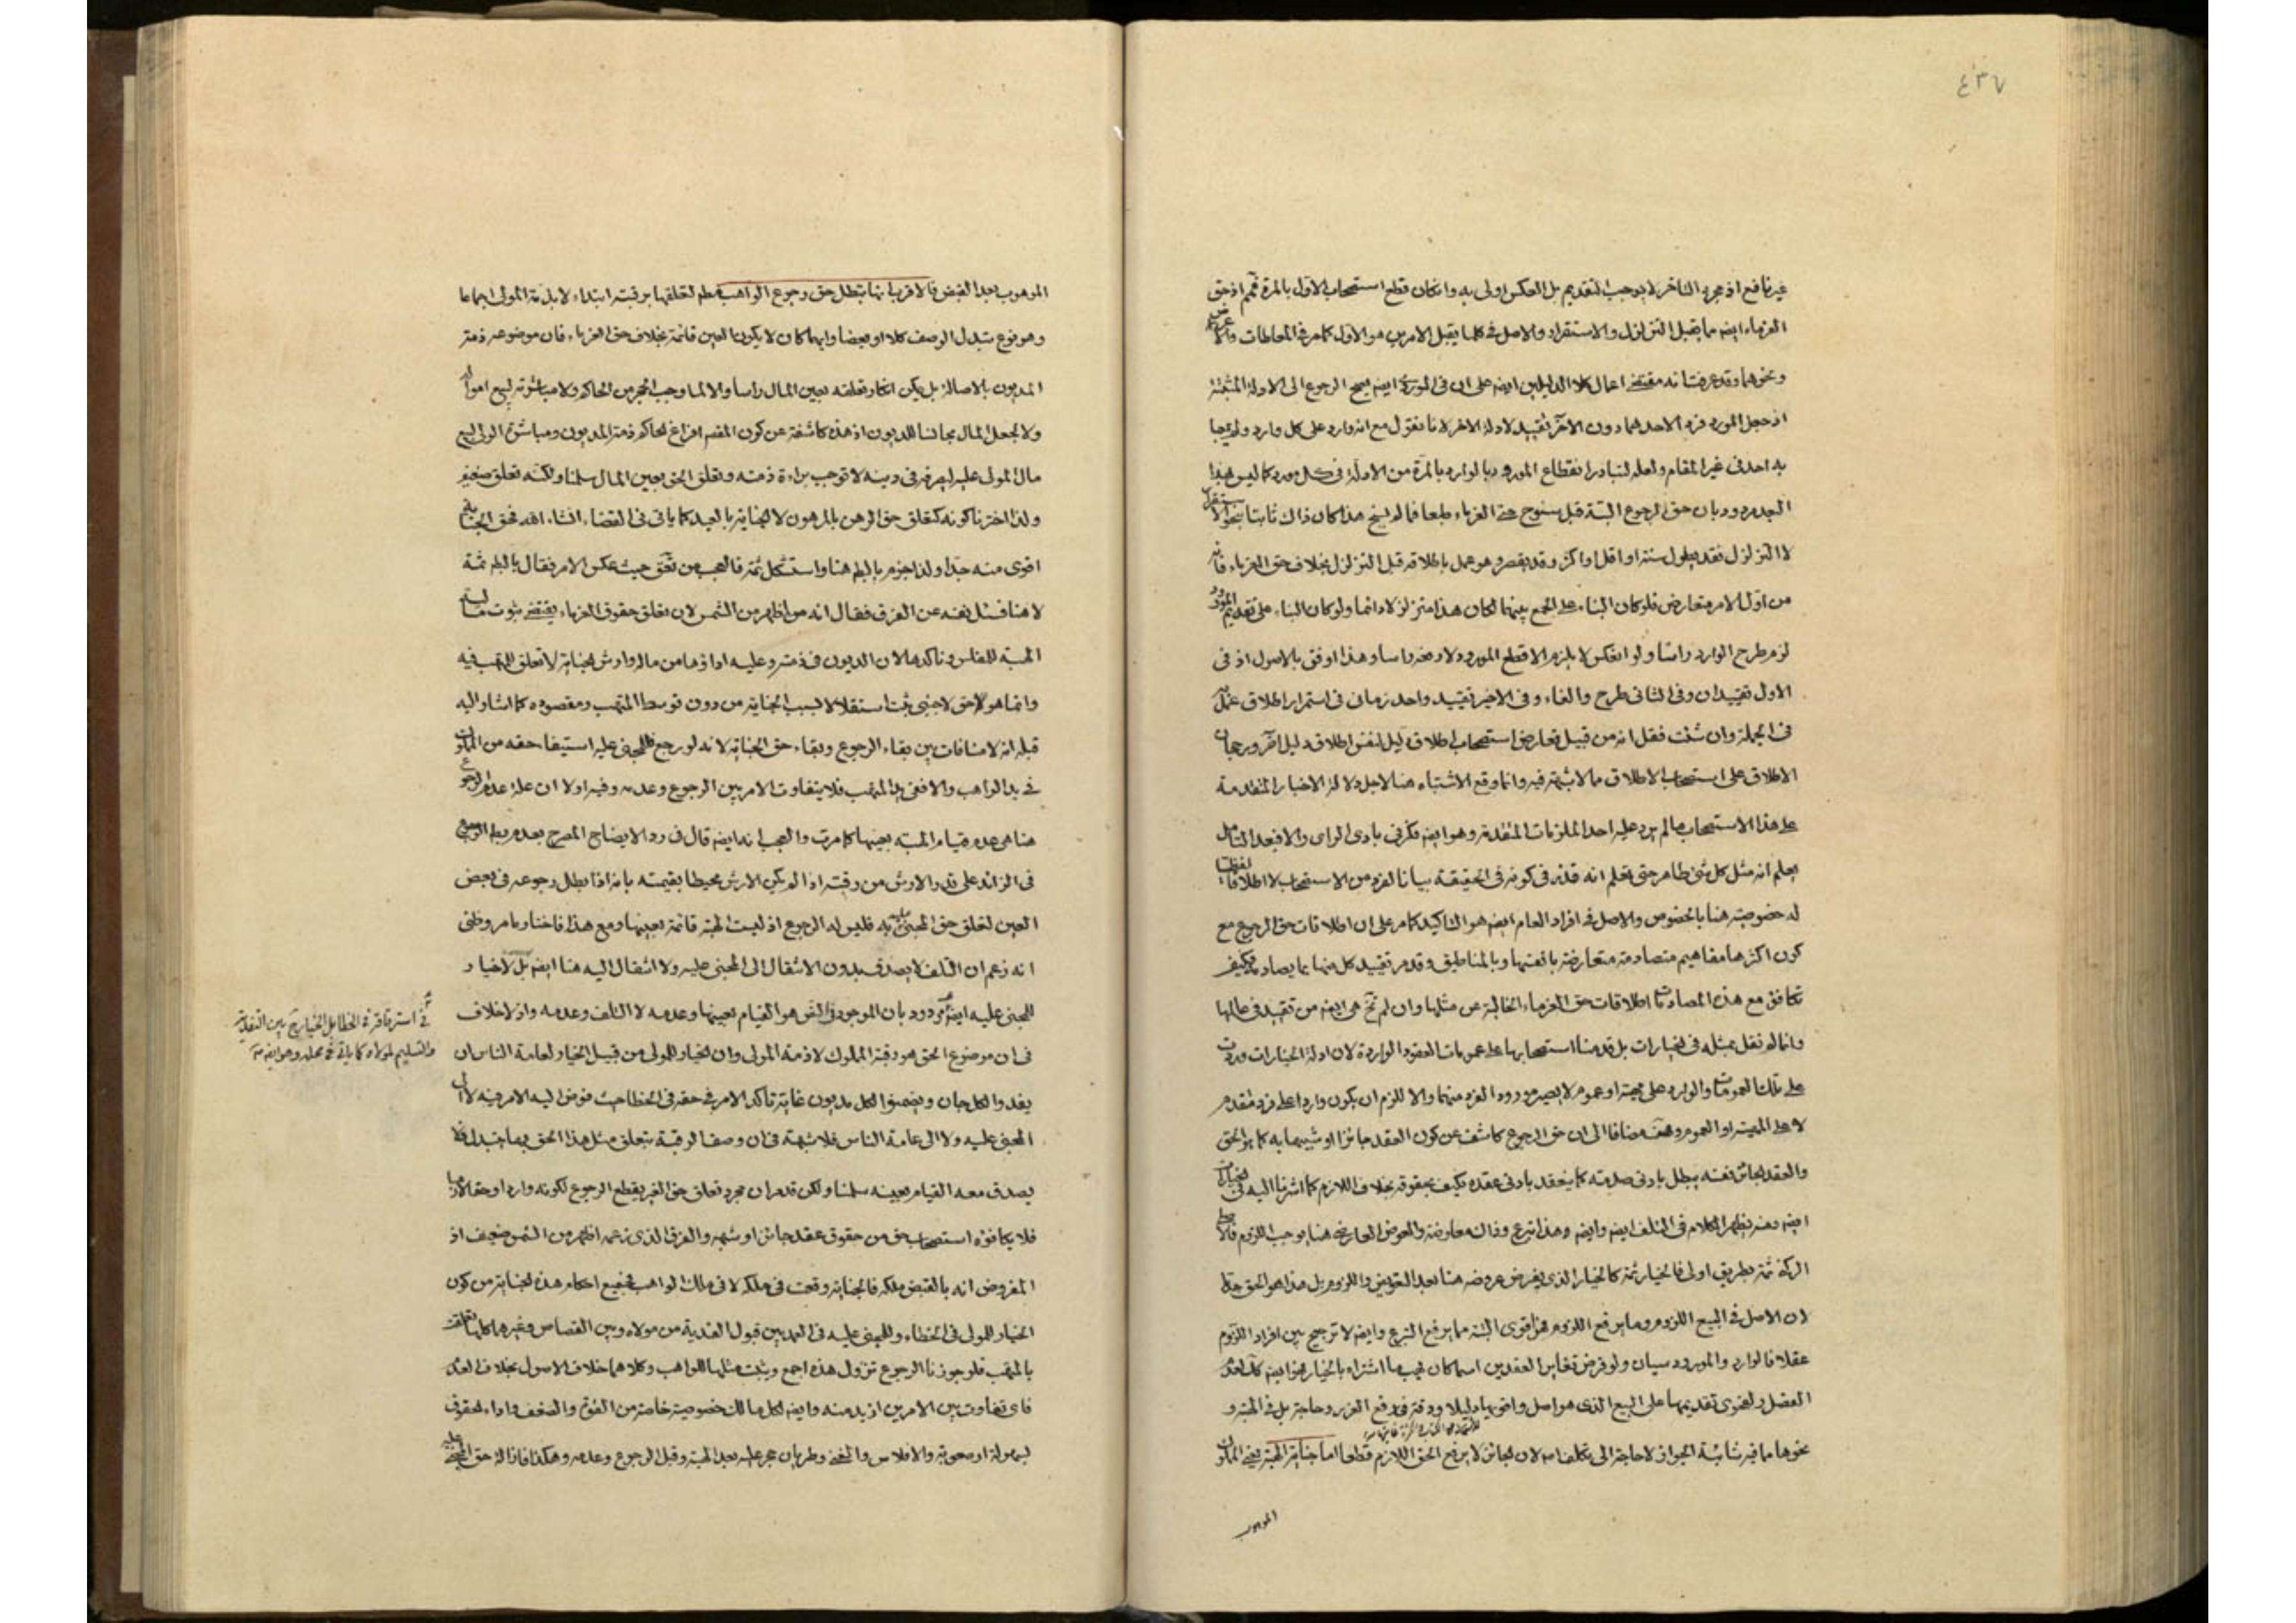 ٤٣٧
غير نافع اذ مجرد التاخر لا يوجب التقديم بل العكس اولى به وان كان قطع استصحاب الاول بالمرة فمم اذ حق
الغرماء ايضا مما يقبل التزلزل والاستقرار والاصل في كلما يقبل الامرين هو الاول كما مر في المعاطات
ونحوهما وقد عرفت انه مقتضى اعمال كلا الدليلين ايضا على ان في الموردين ايضا يصح الرجوع الى الادلة المثبتة
اذ جعل المورد فردا لاحدهما دون الآخر تقييد لادلة الاخر لانا نقول مع انه وارد على كل وارد ولم يجبا
به احد في غير المقام ولعله لتبادر انقطاع المورود بالوارد بالمرة من الادلة في كل مورد كما ليس هذا
مردود بان حق الرجوع البتة قبل سنوح حق الغرماء طبعا فما لم يسنح هذا كان ذاك ثابتا بنحو الاستقرار
لا التزلزل فقد يطول سنة او اقل او اكثر وقد يقصر وهو عمل باطلاقه قبل التزلزل بخلاف حق الغرماء فانه
من اول الامر متعارض فلو كان البناء على الجمع بينهما لكان هذا متزلزلا دائما ولو كان البناء على تقديم المورود
لزم طرح الوارد راسا ولو انعكس لا يلزم الا قطع المورود لا رفعه راسا وهذا اوفق بالاصول اذ في
الاول تقييدان وفي الثاني طرح والغاء وفي الاخير تقييد واحد زماني في استمرار اطلاق عمل به
في الجملة وان شئت فقل انه من قبيل تعارض استصحاب اطلاق دليل لنفس اطلاق دليل اخر ورجحان
الاطلاق على استصحاب الاطلاق مما لا شبهة فيه وانما وقع الاشتباه هنا لاجل دلالة الاخبار المتقدمة
على هذا الاستصحاب ما لم يرد عليه احد الملزمات المتقدمة وهو ايضا فكر في بادي الراي والا فبعد التامل
يعلم انه مثل كل شئ طاهر حتى تعلم انه قذر في كونه في الحقيقة بيانا لفرد من الاستصحاب لا اطلاقا لفظيا
له خصوصية هنا بالخصوص والاصل في افراد العام ايضا هو التاكيد كما مر على ان اطلاقات حق الرجوع مع
كون اكثرها مفاهيم متصادمة متعارضة بانفسها وبالمناطيق وقد مر تقييد كل منها بما يصادمه فكيف
تكافؤ مع هذه المصادمات اطلاقات حق الغرماء الخالية عن مثلها وان لم تخ هي ايضا من تقييد في حالها
وانما لم نقل بمثله في الخيارات بل قدمنا استصحابها على عمومات العقود الواردة لان ادلة الخيارات وردت
على تلك العمومات والوارد على مهية او عموم لا يصير مورودا لفرد منهما والا للزم ان يكون واردا على فرد متقدم
لا على المهية او العموم وهف مضافا الى ان حق الرجوع كاشف عن كون العقد جائزا او شبيها به كما هو الحق
والعقد الجائز نفسه يبطل بادنى صدمة كما ينعقد بادنى عقده فكيف بحقوقه بخلاف اللازم كما اشرنا اليه في الخيارات
ايضا ومنه يظهر الكلام في التلف ايضا وايضا وهذا تبرع وذاك معاوضة والعوض العارض هنا يوجب اللزوم
الركن ثمة بطريق اولى فالخيار ثمة كالخيار الذي يفرض عروضه هنا بعد التعويض واللزوم بل هذا هو الحق جدا
لان الاصل في البيع اللزوم وما يرفع اللزوم فهو اقوى البتة مما يرفع التبرع وايضا لا ترجيح بين افراد اللزوم
عقلا فالوارد والمورود سيان ولو فرض تغاير العقدين اسما كان يهب ما اشتراه بالخيار فهو ايضا كك لعدم
الفصل ولفحوى تقديمها على البيع الذي هو اصل واقوى دليلا ودقة في دفع الضرر وحاجة بل في الهبة و
نحوها مما فيه شائبة الجواز لا حاجة الى تكلفنا لان الجائز لا يرفع الحق اللازم قطعا اما جناية الهبة يعني المملوك
الموهوب
الموهوب بعد القبض فالاقرب انها تبطل حق رجوع الواهب مطم لتعلقها برقبته ابتداء لا بذمة المولى اجماعا
وهو نوع تبدل الوصف كلا او بعضا وايهما كان لا يكون العين قائمة بخلاف حق الغرماء فان موضوعه ذمة
المديون بالاصالة بل يمكن انكار تعلقه بعين المال راسا والا لما وجب الحجر من الحاكم ولا مباشرته لبيع امواله
ولا لجعل المال مجانسا للديون اذ هذه كاشفة عن كون المقصد افراغ الحاكم ذمة المديون ومباشرة الولي لبيع
مال المولى عليه ليصرفه في دينه لا توجب براءة ذمته وتعلق الحق بعين المال سلمنا ولكنه تعلق ضعيف
ولذا اخترنا كونه كتعلق حق الرهن بالمرهون لا الجناية بالعبد كما ياتي في القضاء انشاء الله فحق الجناية
اقوى منه جدا ولذا جزم بالبطم هنا واستشكل ثمة فالعجب من نفق حيث عكس الامر فقال بالبطم ثمة
لا هنا فسئل نفسه عن الفرق فقال انه هو اظهر من الشمس لان تعلق حقوق الغرماء يقتضي ثبوت مالية
الهبة للمفلس وتاكدها لان الديون في ذمته وعليه اداؤها من ماله وارش الجناية لا تعلق للمتهب فيه
وانما هو حق لاجنبي يثبت استقلالا بسبب الجناية من دون توسط المتهب ومقصوده كما اشار اليه
قبله انه لا منافات بين بقاء الرجوع وبقاء حق الجناية لانه لو رجع فللمجني عليه استيفاء حقه من المملوك
في يد الواهب والا ففي يد المتهب فلا يتفاوت الامر بين الرجوع وعدمه وفيه اولا ان علة عدم الرجوع
هنا هي عدم قيام الهبة بعينها كما مرت والعجب انه ايضا قال في رد الايضاح المصرح بعدم بطم الرجوع
في الزائد على قدر الارش من رقبته اذا لم يكن الارش محيطا بقيمته بانه اذا بطل رجوعه في بعض
العين لتعلق حق المجني عليه به فليس له الرجوع اذ ليست الهبة قائمة بعينها ومع هذا فاختار ما مر وظني
انه زعم ان التلف لا يصدق بدون الانتقال الى المجني عليه ولا انتقال اليه هنا ايضا بل لا خيار
للمجني عليه ايضا مردود بان الموجود في النص هو القيام بعينها وعدمه لا التلف وعدمه واذ لا خلاف
في ان موضوع الحق هو رقبة المملوك لا ذمة المولى وان الخيار للمولى من قبيل الخيار لعامة الناس ان
يفدوا لكل جان ويضمنوا لكل مديون غاية تاكد الامر في حقه في الخطا حيث فوض اليه الامر فيه لا الى
المجني عليه ولا الى عامة الناس فلا شبهة في ان وصف الرقبة بتعلق مثل هذا الحق بها تبدل فلا
يصدق معه القيام بعينه سلمنا ولكن قد مر ان مجرد تعلق حق الغير يقطع الرجوع لكونه واردا وحقا لازما
فلا يكافؤه استصحاب حق من حقوق عقد جائز او شبهه والفرق الذي زعمه اظهر من الشمس ضعيف اذ
المفروض انه بالقبض ملكه فالجناية وقعت في ملكه لا في ملك الواهب فجميع احكام هذه الجناية من كون
الخيار للمولى في الخطاء وللمجني عليه في العمد بين قبول الفدية من مولاه وبين القصاص وغيرهما كلها تعلقت
بالمتهب فلو جوزنا الرجوع تزول هذه اجمع ويثبت مثلها للواهب وكلاهما خلاف الاصول بخلاف العدم
فاي تفاوت بين الامرين ازيد منه وايضا لكل مالك خصوصية خاصة من القوة والضعف واداء الحقوق
بسهولة او صعوبة والافلاس والغنى وطريان حجر عليه بعد الهبة وقبل الرجوع وعدمه وهكذا فازالة حق المجني عليه
في استرقاقه في الخطا بل الخيار ح بين الفدية
والتسليم لمولاه كما ياتي في محله وهو ايضا